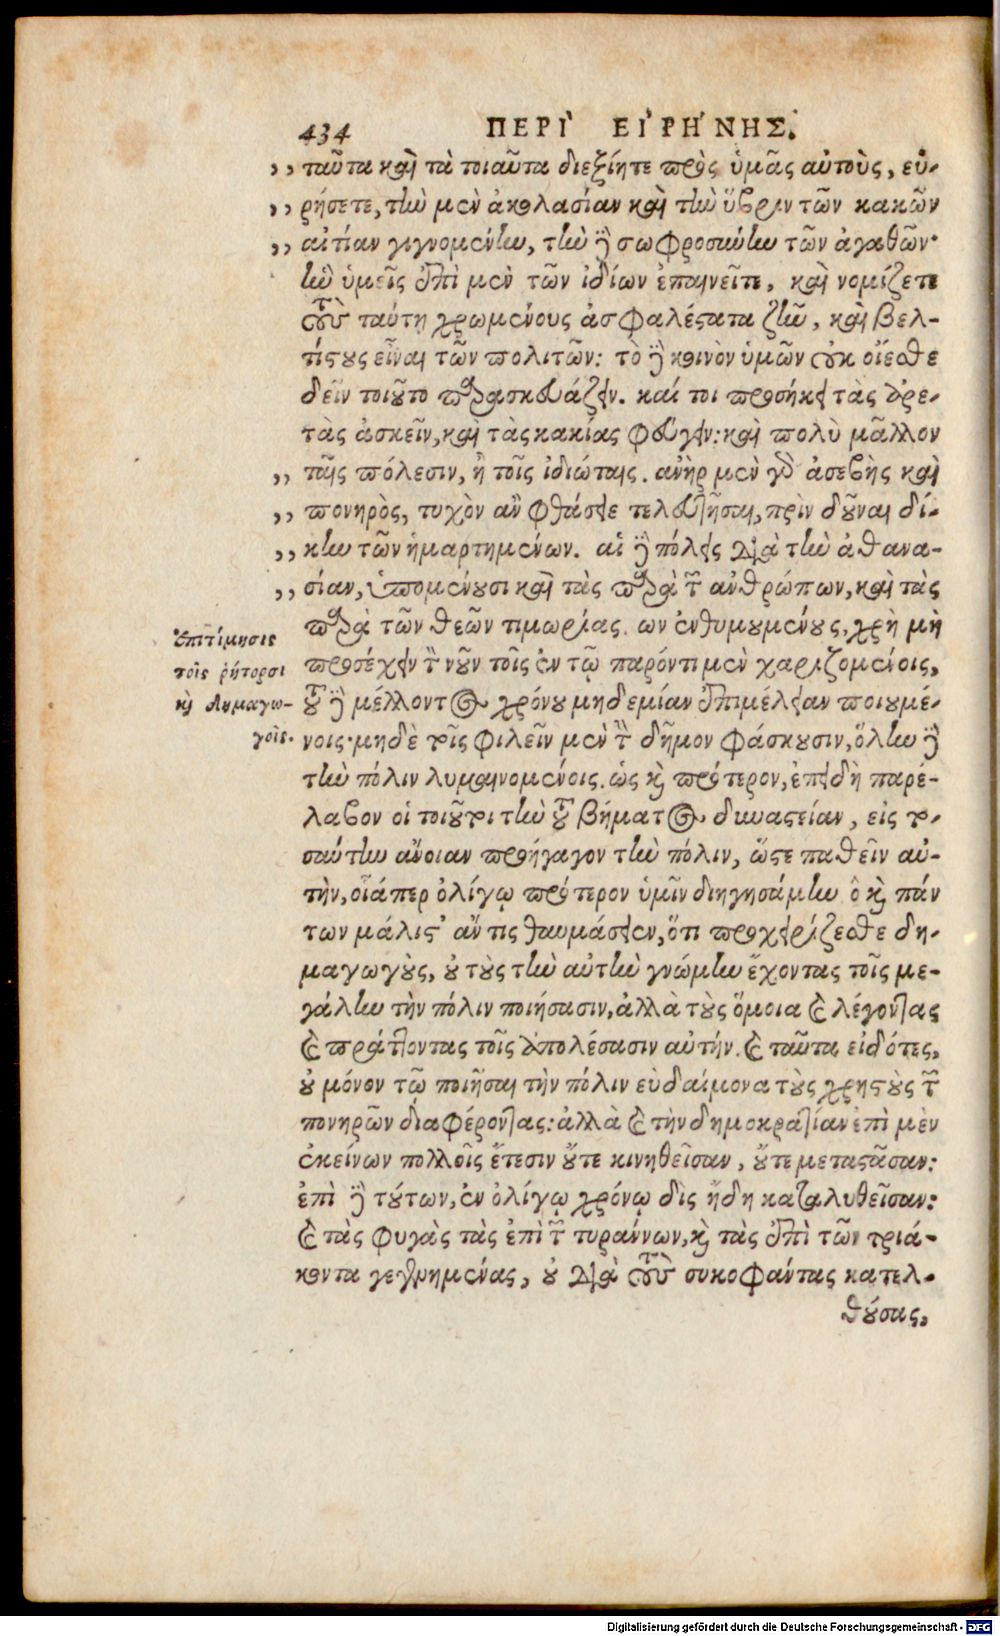 434 ΠΕΡῚ ΕΙ᾿ΡΗ΄ΝΗΣ.
,, ταῦτα καὶ τὰ τοιαῦτα διεξίητε πρὸς ὑμᾶς αὐτοὺς, εὑ-
,, ρήσετε, τὴν μὲν ἀκολασίαν καὶ τὴν ὕβριν τῶν κακῶν
,, αἰτίαν γιγνομένην, τὴν δὲ σωφροσύνην τῶν ἀγαθῶν·
ἣν ὑμεῖς ἐπὶ μὲν τῶν ἰδίων ἐπαινεῖτε, καὶ νομίζετε
τοὺς ταύτῃ χρωμένους ἀσφαλέστατα ζῆν, καὶ βελ-
τίστους εἶναι τῶν πολιτῶν: τὸ δὲ κοινὸν ὑμῶν οὐκ οἴεσθε
δεῖν τοιοῦτο παρασκευάζειν. καί τοι προσήκει τὰς ἀρε-
τὰς ἀσκεῖν, καὶ τὰς κακίας φεύγειν: καὶ πολὺ μᾶλλον
,, ταῖς πόλεσιν, ἢ τοῖς ἰδιώταις. ἀνὴρ μὲν γὰρ ἀσεβὴς καὶ
,, πονηρὸς, τυχὸν ἂν φθάσειε τελευτῆσαι, πρὶν δοῦναι δί-
,, κην τῶν ἡμαρτημένων. αἱ δὲ πόλεις διὰ τὴν ἀθανα-
,, σίαν, ὑπομένουσι καὶ τὰς παρὰ τῶν ἀνθρώπων, καὶ τὰς
παρὰ τῶν θεῶν τιμωρίας. ὧν ἐνθυμουμένους, χρὴ μὴ
προσέχειν τὸν νοῦν τοῖς ἐν τῷ παρόντι μὲν χαριζομένοις,
τοῦ δὲ μέλλοντος χρόνου μηδεμίαν ἐπιμέλειαν ποιουμέ-
νοις· μηδὲ τοῖς φιλεῖν μὲν τὸν δῆμον φάσκουσιν, ὅλην δὲ
τὴν πόλιν λυμαινομένοις. ὡς καὶ πρότερον, ἐπειδὴ παρέ-
λαβον οἱ τοιοῦτοι τὴν τοῦ βήματος δυναστείαν, εἰς το-
σαύτην ἄνοιαν προήγαγον τὴν πόλιν, ὥστε παθεῖν αὐ-
τὴν, οἷάπερ ὀλίγῳ πρότερον ὑμῖν διηγησάμην ὃ καὶ πάν
των μάλιστ' ἄν τις θαυμάσειεν, ὅτι προχειρίζεσθε δη-
μαγωγοὺς, οὐ τοὺς τὴν αὐτὴν γνώμην ἔχοντας τοῖς με-
γάλην τὴν πόλιν ποιήσασιν, ἀλλὰ τοὺς ὅμοια καὶ λέγοντας
καὶ πράττοντας τοῖς ἀπολέσασιν αὐτήν. καὶ ταῦτα εἰδότες,
οὐ μόνον τῷ ποιῆσαι τὴν πόλιν εὐδαίμονα τοὺς χρηστοὺς τῶν
πονηρῶν διαφέροντας: ἀλλὰ καὶ τὴν δημοκρατίαν ἐπὶ μὲν
ἐκείνων πολλοῖς ἔτεσιν οὔτε κινηθεῖσαν, οὔτε μεταστᾶσαν:
ἐπὶ δὲ τούτων, ἐν ὀλίγῳ χρόνῳ δὶς ἤδη καταλυθεῖσαν:
καὶ τὰς φυγὰς τὰς ἐπὶ τῶν τυράννων, καὶ τὰς ἐπὶ τῶν τριά-
κοντα γεγενημένας, οὐ διὰ τοὺς συκοφάντας κατελ-
θούσας,
ἐπιτίμησις
τοῖς ῥήτορσι
καὶ δημαγω-
γοῖς.
Digitalisierung gefördert durch die Deutsche Forschungsgemeinschaft - DFG